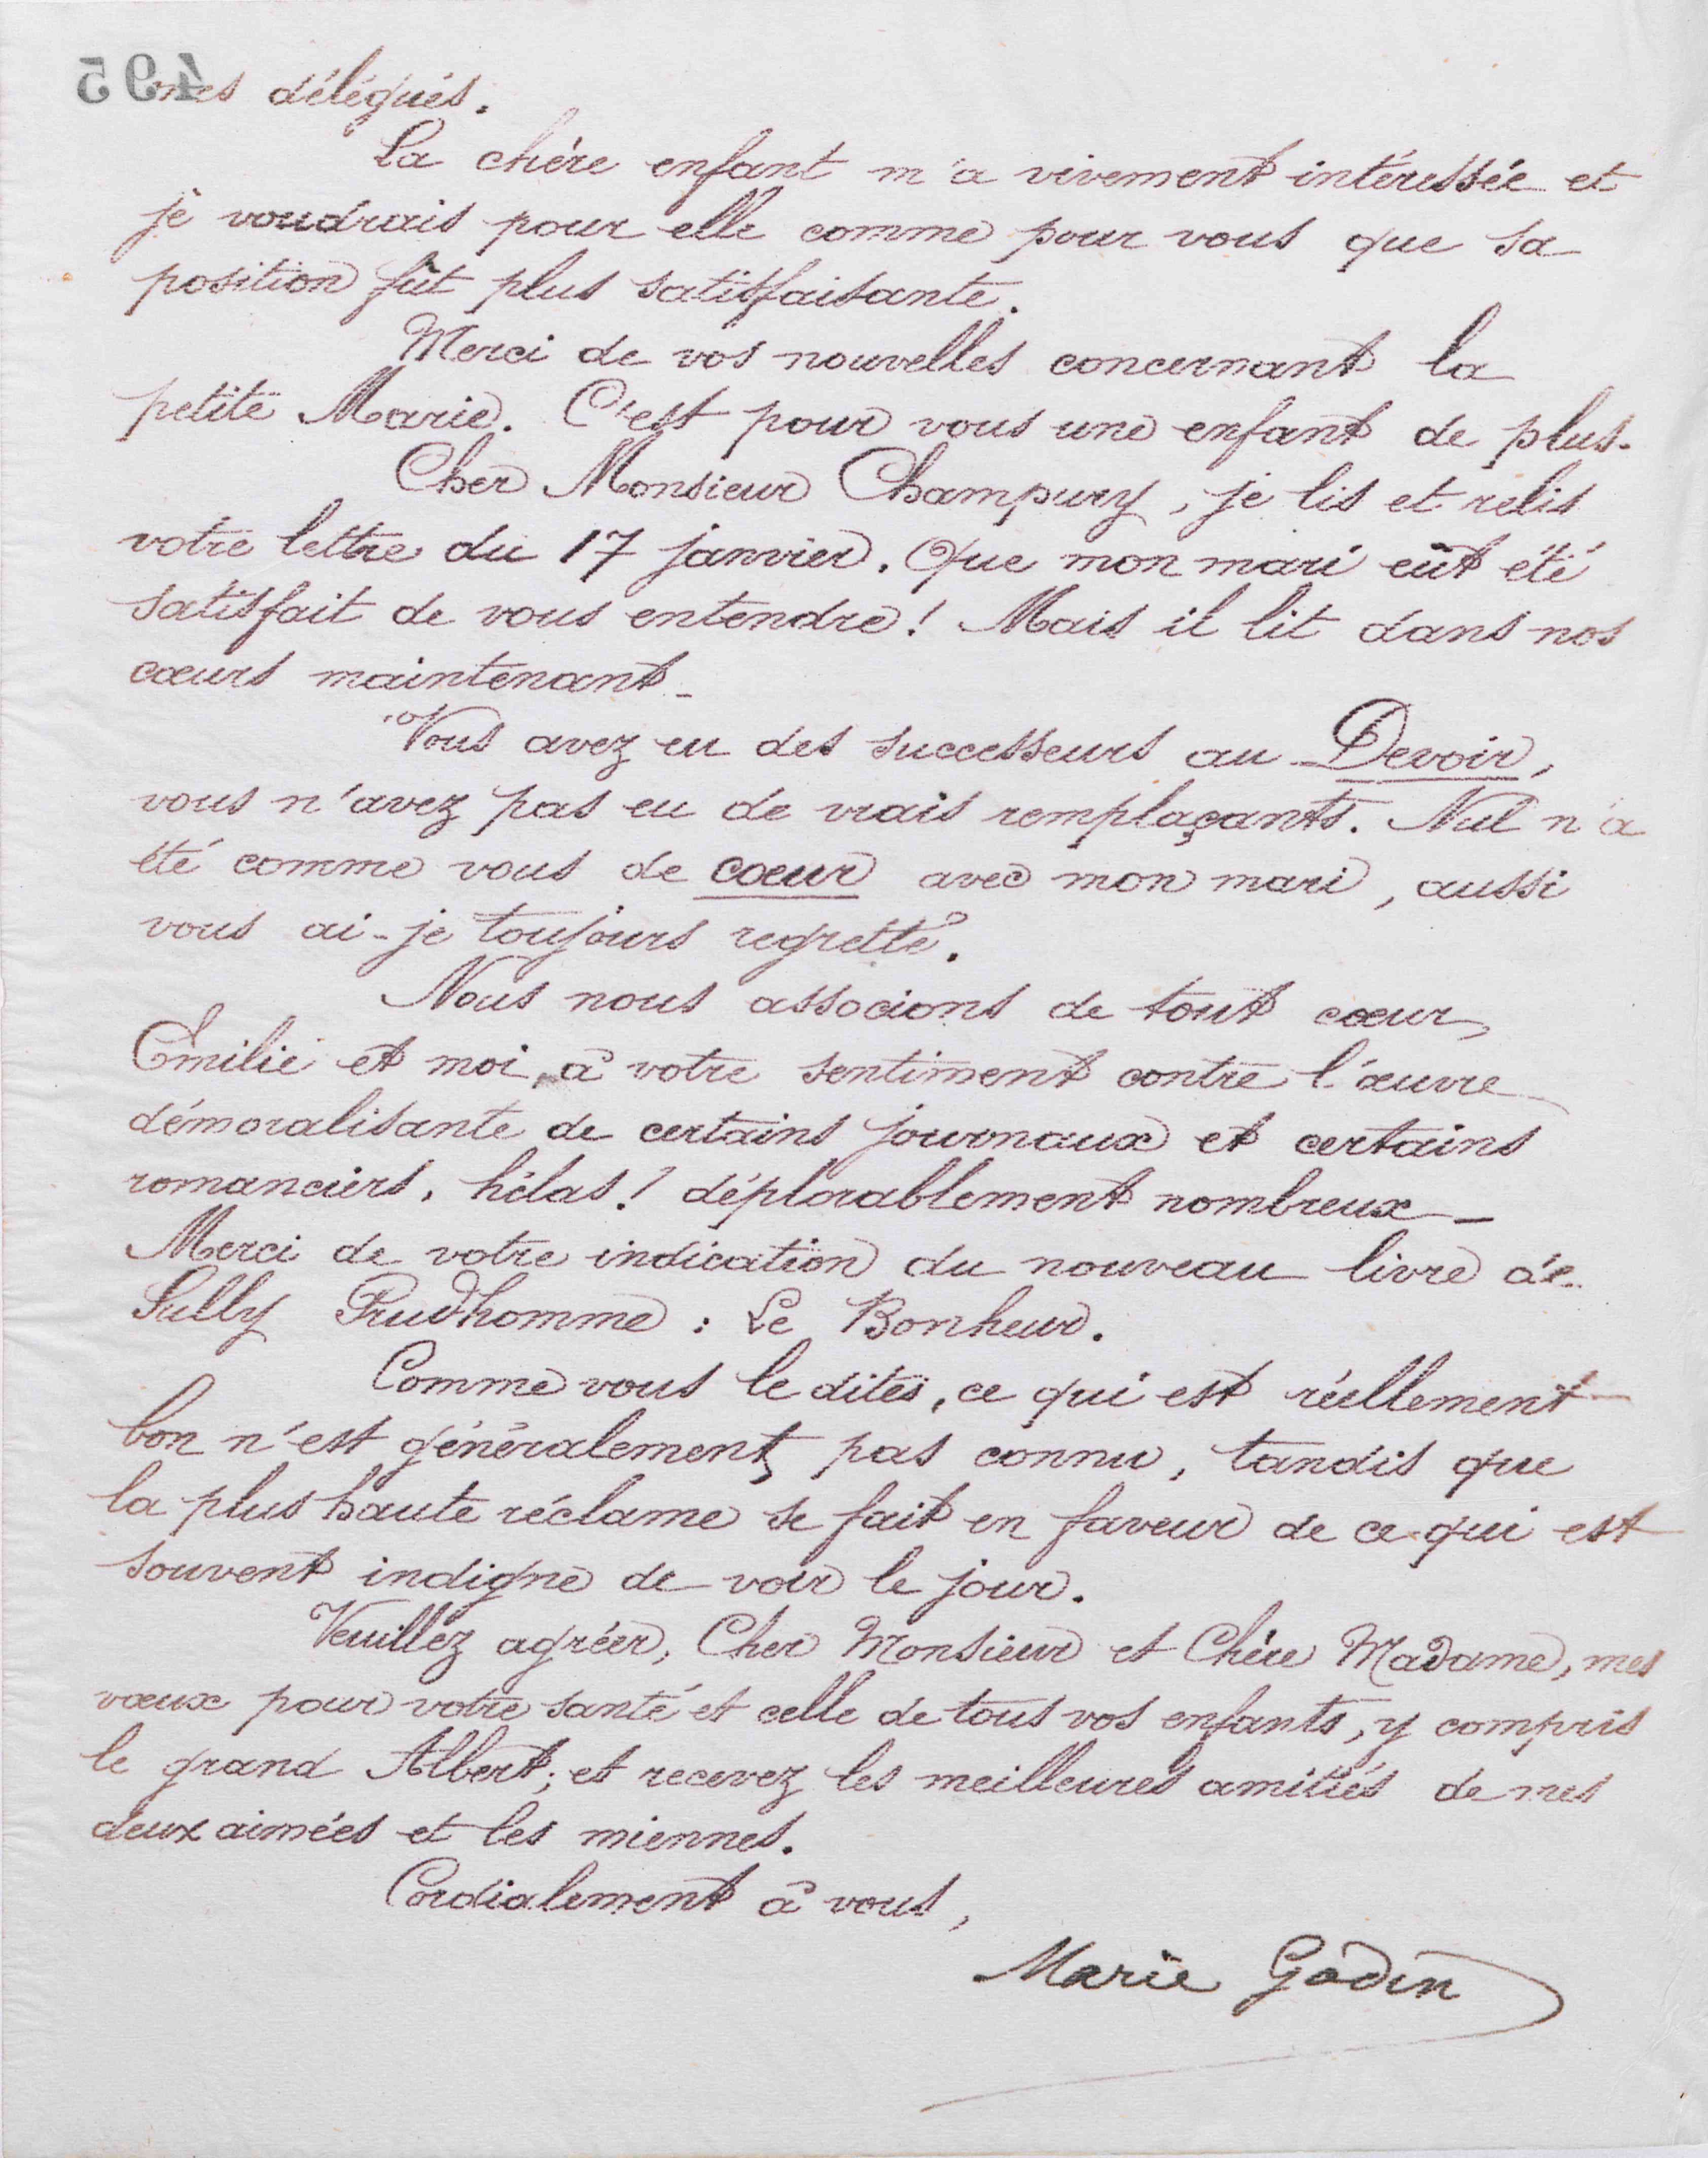 495
mes délégués.
La chère enfant m'a vivement intéressée et
je voudrais pour elle comme pour vous que sa
position fût plus satisfaisante.
Merci de vos nouvelles concernant la
petite Marie. C'est pour vous une enfant de plus.
Cher Monsieur Champury, je lis et relis
votre lettre du 17 janvier. Que mon mari eût été
satisfait de vous entendre! Mais il lit dans nos
cœurs maintenant_
Vous avez eu des successeurs au Devoir,
vous n'avez pas eu de vrais remplaçants. Nul n'a
été comme vous de cœur avec mon mari, aussi
vous ai-je toujours regretté.
Nous nous associons de tout cœur,
Emilie et moi, à votre sentiment contre l'œuvre
démoralisante de certains journaux et certains
romanciers, hélas! déplorablement nombreux_
Merci de votre indication du nouveau livre de
Sully Prudhomme : Le Bonheur.
Comme vous le dites, ce qui est réellement
bon n'est généralement pas connu, tandis que
la plus haute réclame se fait en faveur de ce qui est
souvent indigne de voir le jour.
Veuillez agréer, Cher Monsieur et Chère Madame, mes
vœux pour votre santé et celle de tous vos enfants, y compris
le grand Albert; et recevez les meilleures amitiés de mes
deux aimées et les miennes.
Cordialement à vous,
Marie Godin